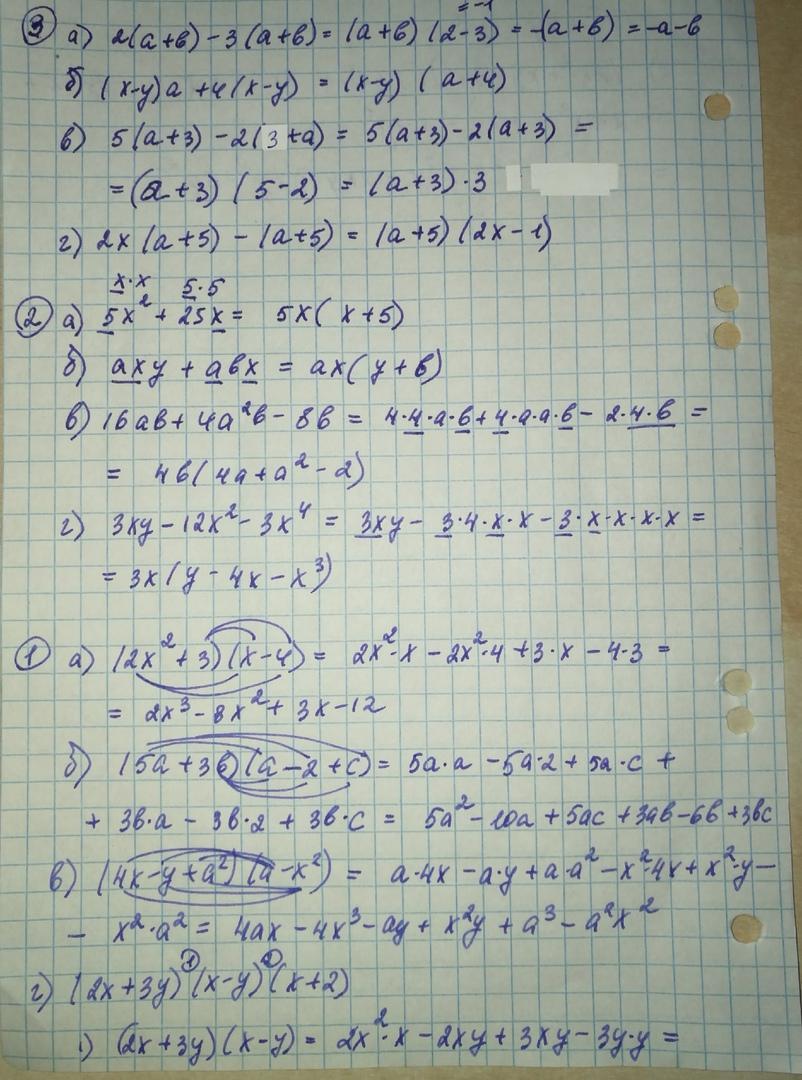 = -1
③ а) 2(a+b) - 3(a+b) = (a+b)(2-3) = -(a+b) = -a-b
б) (x-y)a + 4(x-y) = (x-y)(a+4)
в) 5(a+3) - 2(3+a) = 5(a+3) - 2(a+3) =
= (a+3)(5-2) = (a+3)·3
г) 2x(a+5) - (a+5) = (a+5)(2x-1)
x·x 5·5
② а) 5x² + 25x = 5x(x+5)
б) axy + abx = ax(y+b)
в) 16ab + 4a²b - 8b = 4·4·a·b + 4·a·a·b - 2·4·b =
= 4b(4a+a²-2)
г) 3xy - 12x² - 3x⁴ = 3xy - 3·4·x·x - 3·x·x·x·x =
= 3x(y - 4x - x³)
① а) (2x²+3)(x-4) = 2x²·x - 2x²·4 + 3·x - 4·3 =
= 2x³ - 8x² + 3x - 12
б) (5a+3b)(a-2+c) = 5a·a - 5a·2 + 5a·c +
+ 3b·a - 3b·2 + 3b·c = 5a² - 10a + 5ac + 3ab - 6b + 3bc
в) (4x-y+a²)(a-x²) = a·4x - a·y + a·a² - x²·4x + x²·y -
- x²·a² = 4ax - 4x³ - ay + x²y + a³ - a²x²
г) (2x+3y) ① (x-y) ② (x+2)
1) (2x+3y)(x-y) = 2x²·x - 2xy + 3xy - 3y·y =